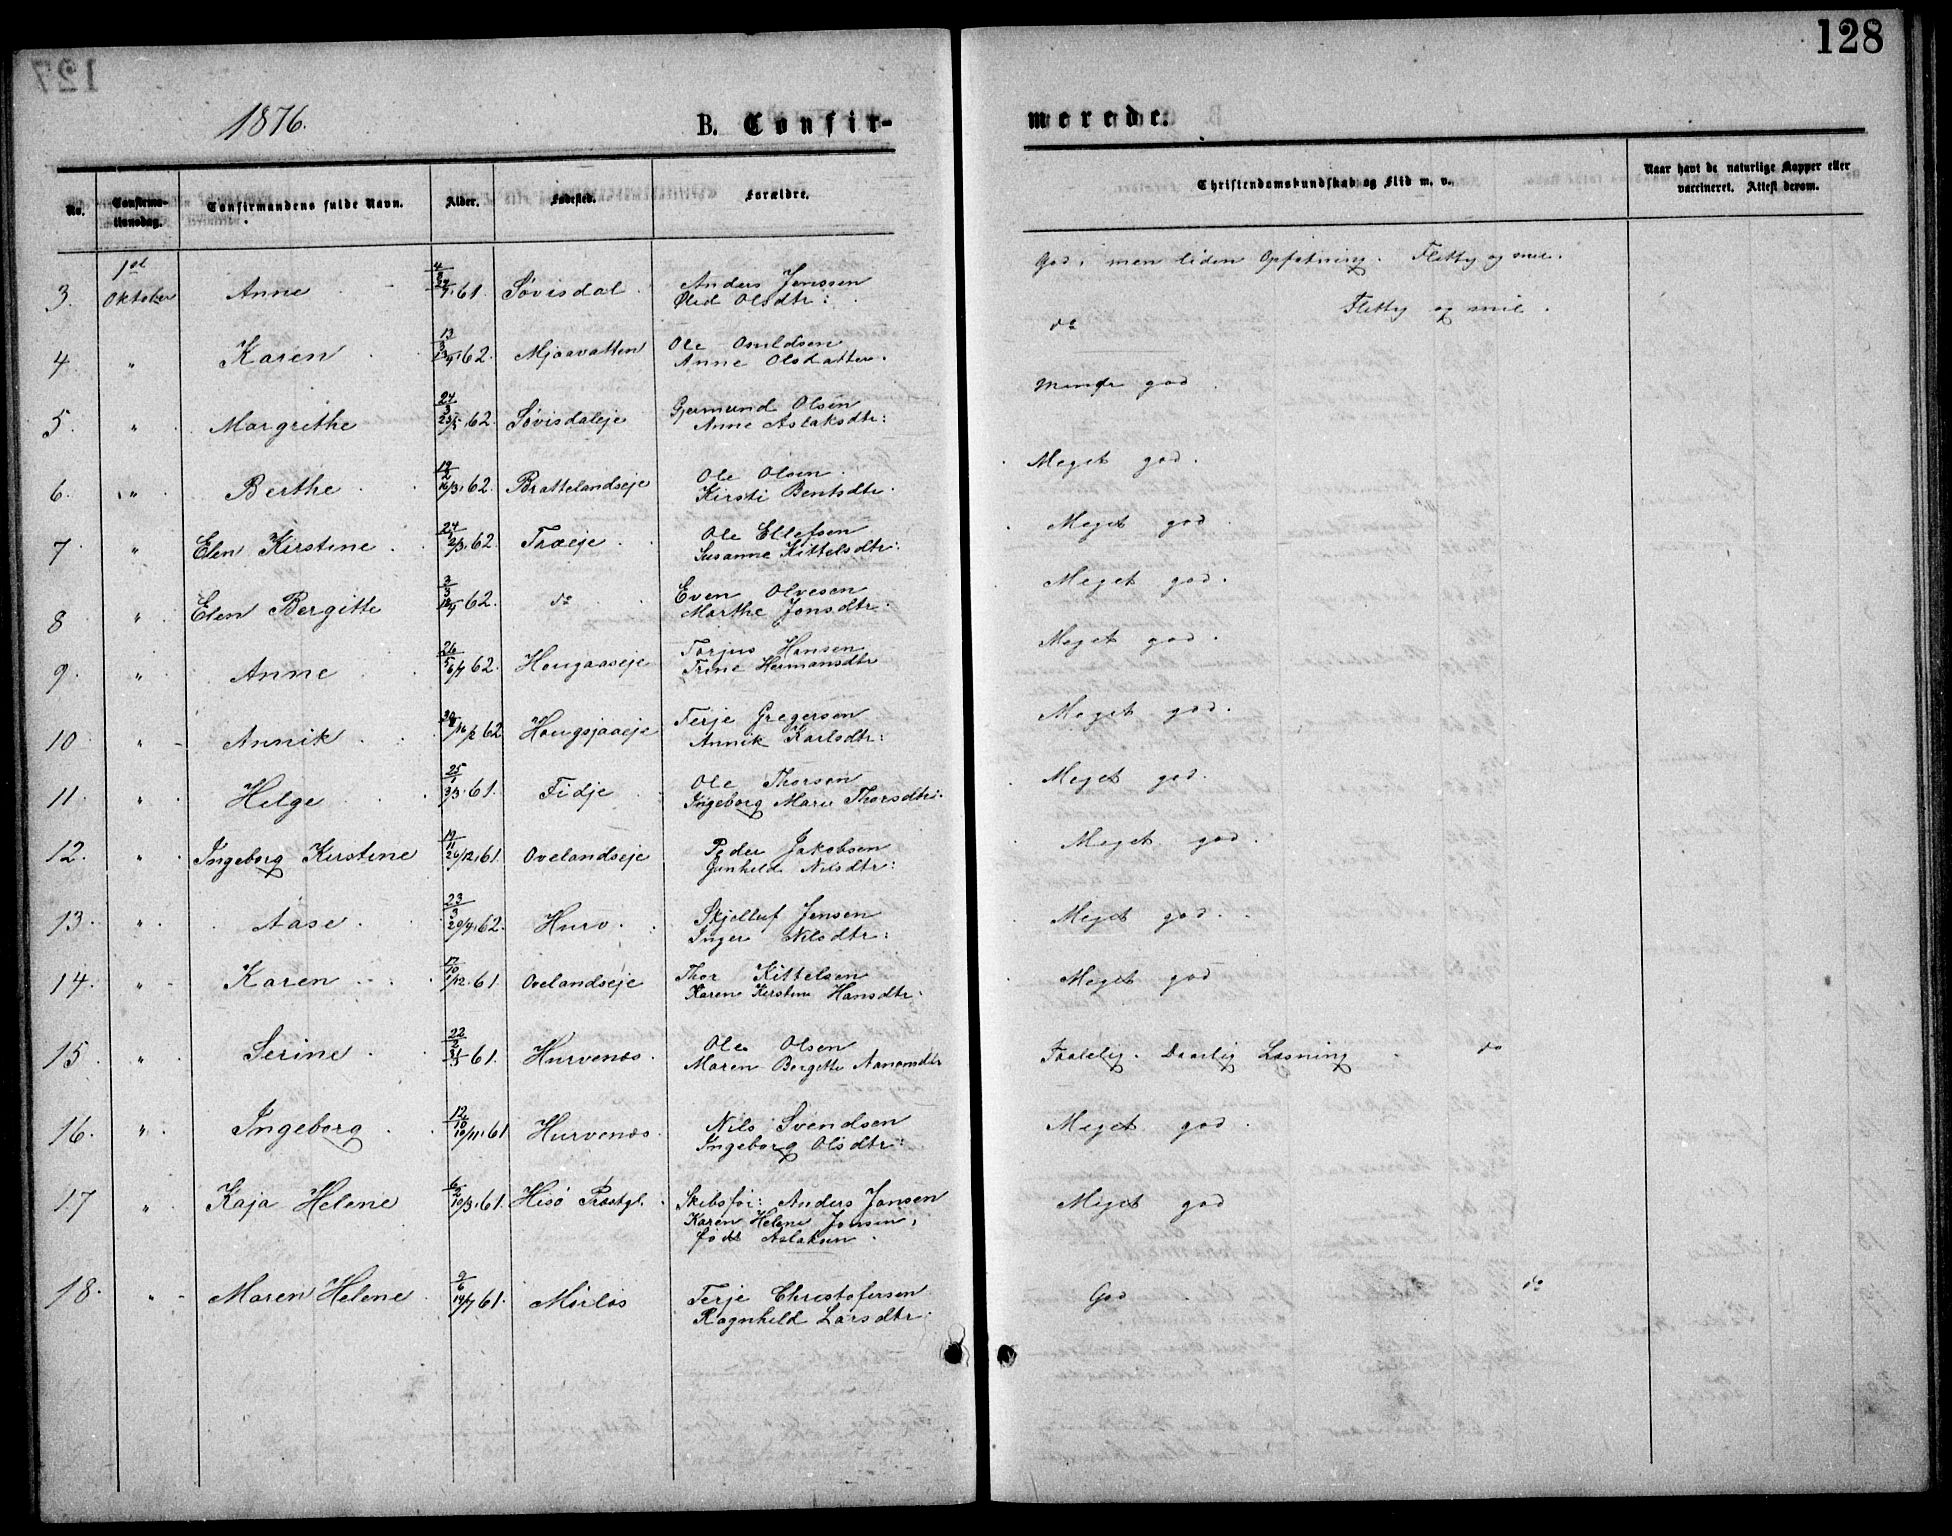 128
1876.
B. Confir-
merede.
No.
Confirma-
tionsdag.
Confirmandens fulde Navn.
Alder.
Fødested.
Forældre.
Christendomskundskab og Flid m. v.
Naar havt de naturlige Kopper eller
vaccineret. Attest derom.
3. 1ste Oktober Anne 61. Søvisdal Anders Jenssen
Olsdtr:
God, men liden Opfatning. Flittig og snil.
4. " Karen 62. Mjaavatten Ole
Anne Olsdatter.
do Flittig og snil.
5. " Margrethe 24/3 62. Søvisdaleje Gjermund Olsen
Anne Aslaksdtr:
Mindre god
6. " Berthe 62. Brattelandseje Ole Olsen
Kirsti Bentsdtr.
Meget god.
7. " Elen Kirstine 62. Ole Ellefsen
Susanne Kittelsdtr:
Meget god
8. " Elen Bergitte 62. do Even Olvesen
Marthe Jensdtr.
Meget god.
9. " Anne 26/5 62. Hougaaseje Torjus Hansen
Trine Hermansdtr
Meget god.
10. " Annik 62 Hougsjaaeje Terje Gregersen
Annik Karlsdtr:
Meget god.
11. " Helge 25/1 61. Fidje Ole Thorsen
Ingeborg Marie Thorsdtr:
Meget god.
12. " Ingeborg Kirstine 61. Ovelandseje Peder Jakobsen
Gunhild Nilsdtr:
Meget god.
13. " Aase 23/3 62. Hurv. Jensen
Inger Nilsdtr:
Meget god.
14. " Karen 61. Ovelandseje Thor Kittelsen
Karen Kirstine Hansdtr.
Meget god
15. " Serine 22/2 61. Hurvenæs. Ole Olsen
Maren Bergitte
Taalelig. Daarlig Læsning do
16. " Ingeborg 12/10 10/11 61 Hurvenæs. Nils Svendsen
Ingeborg Olsdtr:
Meget god.
17 " Kaja Helene 6/2 10/3 61. Hisø Præstgl. Skibsfør: Anders Jensen
Karen Helene Jensen,
født Aslaksen.
Meget god
18. " Maren Helene 9/6 14/7 61. Terje Christofersen
Ragnhild Larsdtr.
God do